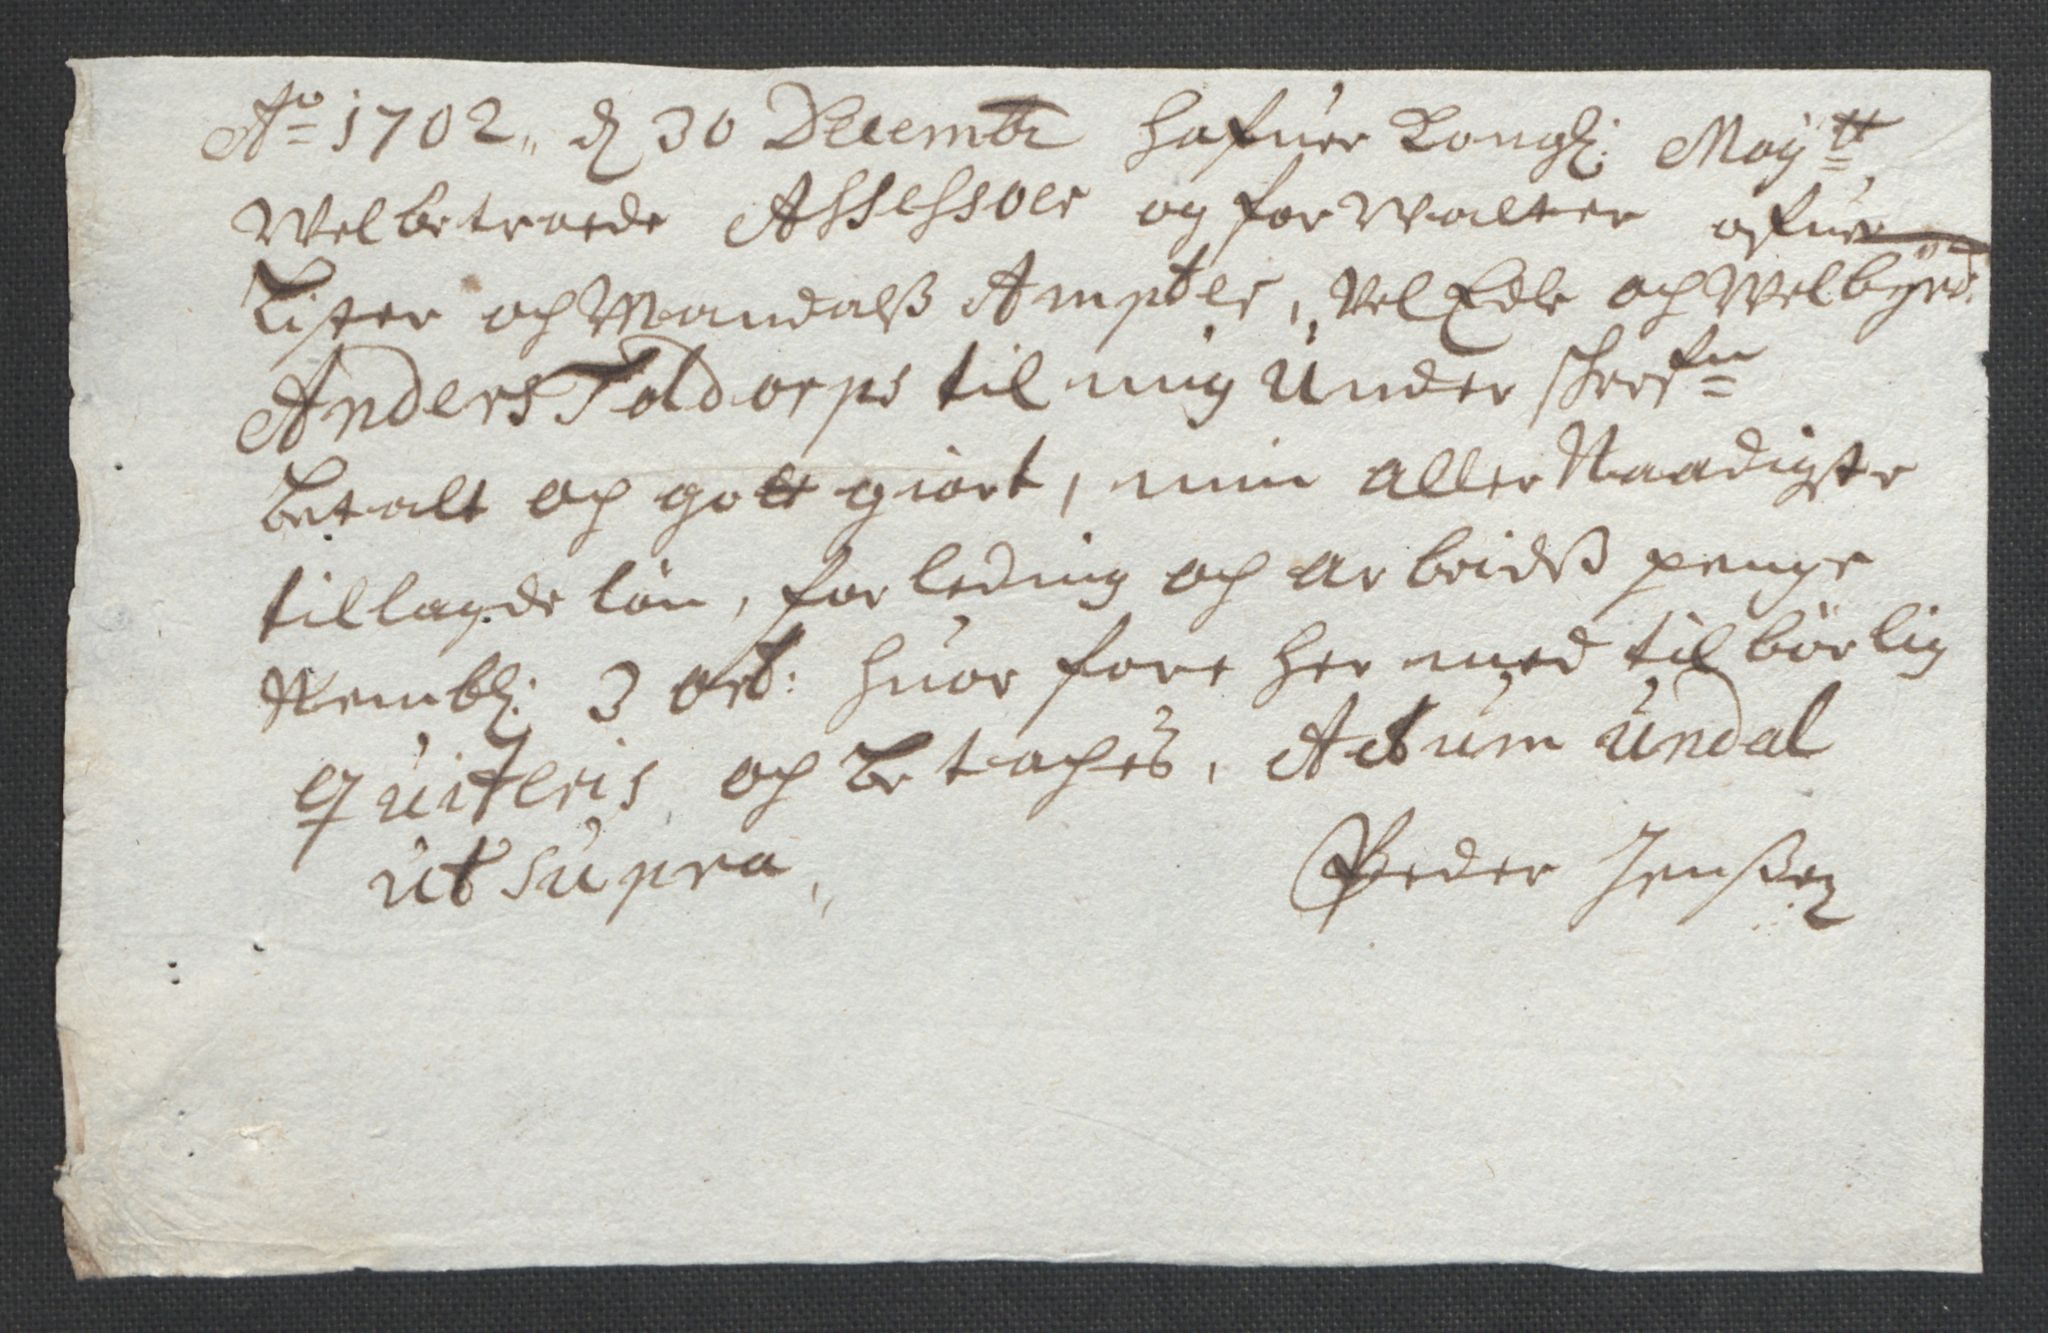 Ao 1702 d 30 Decembr hafuer Kongl: Maytt
Welbetroede Assessoer og forWalter ofuer
Lister och Mandalß Ampter, Vel Edle och Welbyrd:
Anders Toldorps til mig Underschrefn
betalt och gott giort, min aller Naadigste
tillagde løn, forleding och arbeidß penge
Nembl: 3 ort: huor fore her med tilbörlig
quiteris och betaches, Actum Undal
ut supra
Peder Jenßen